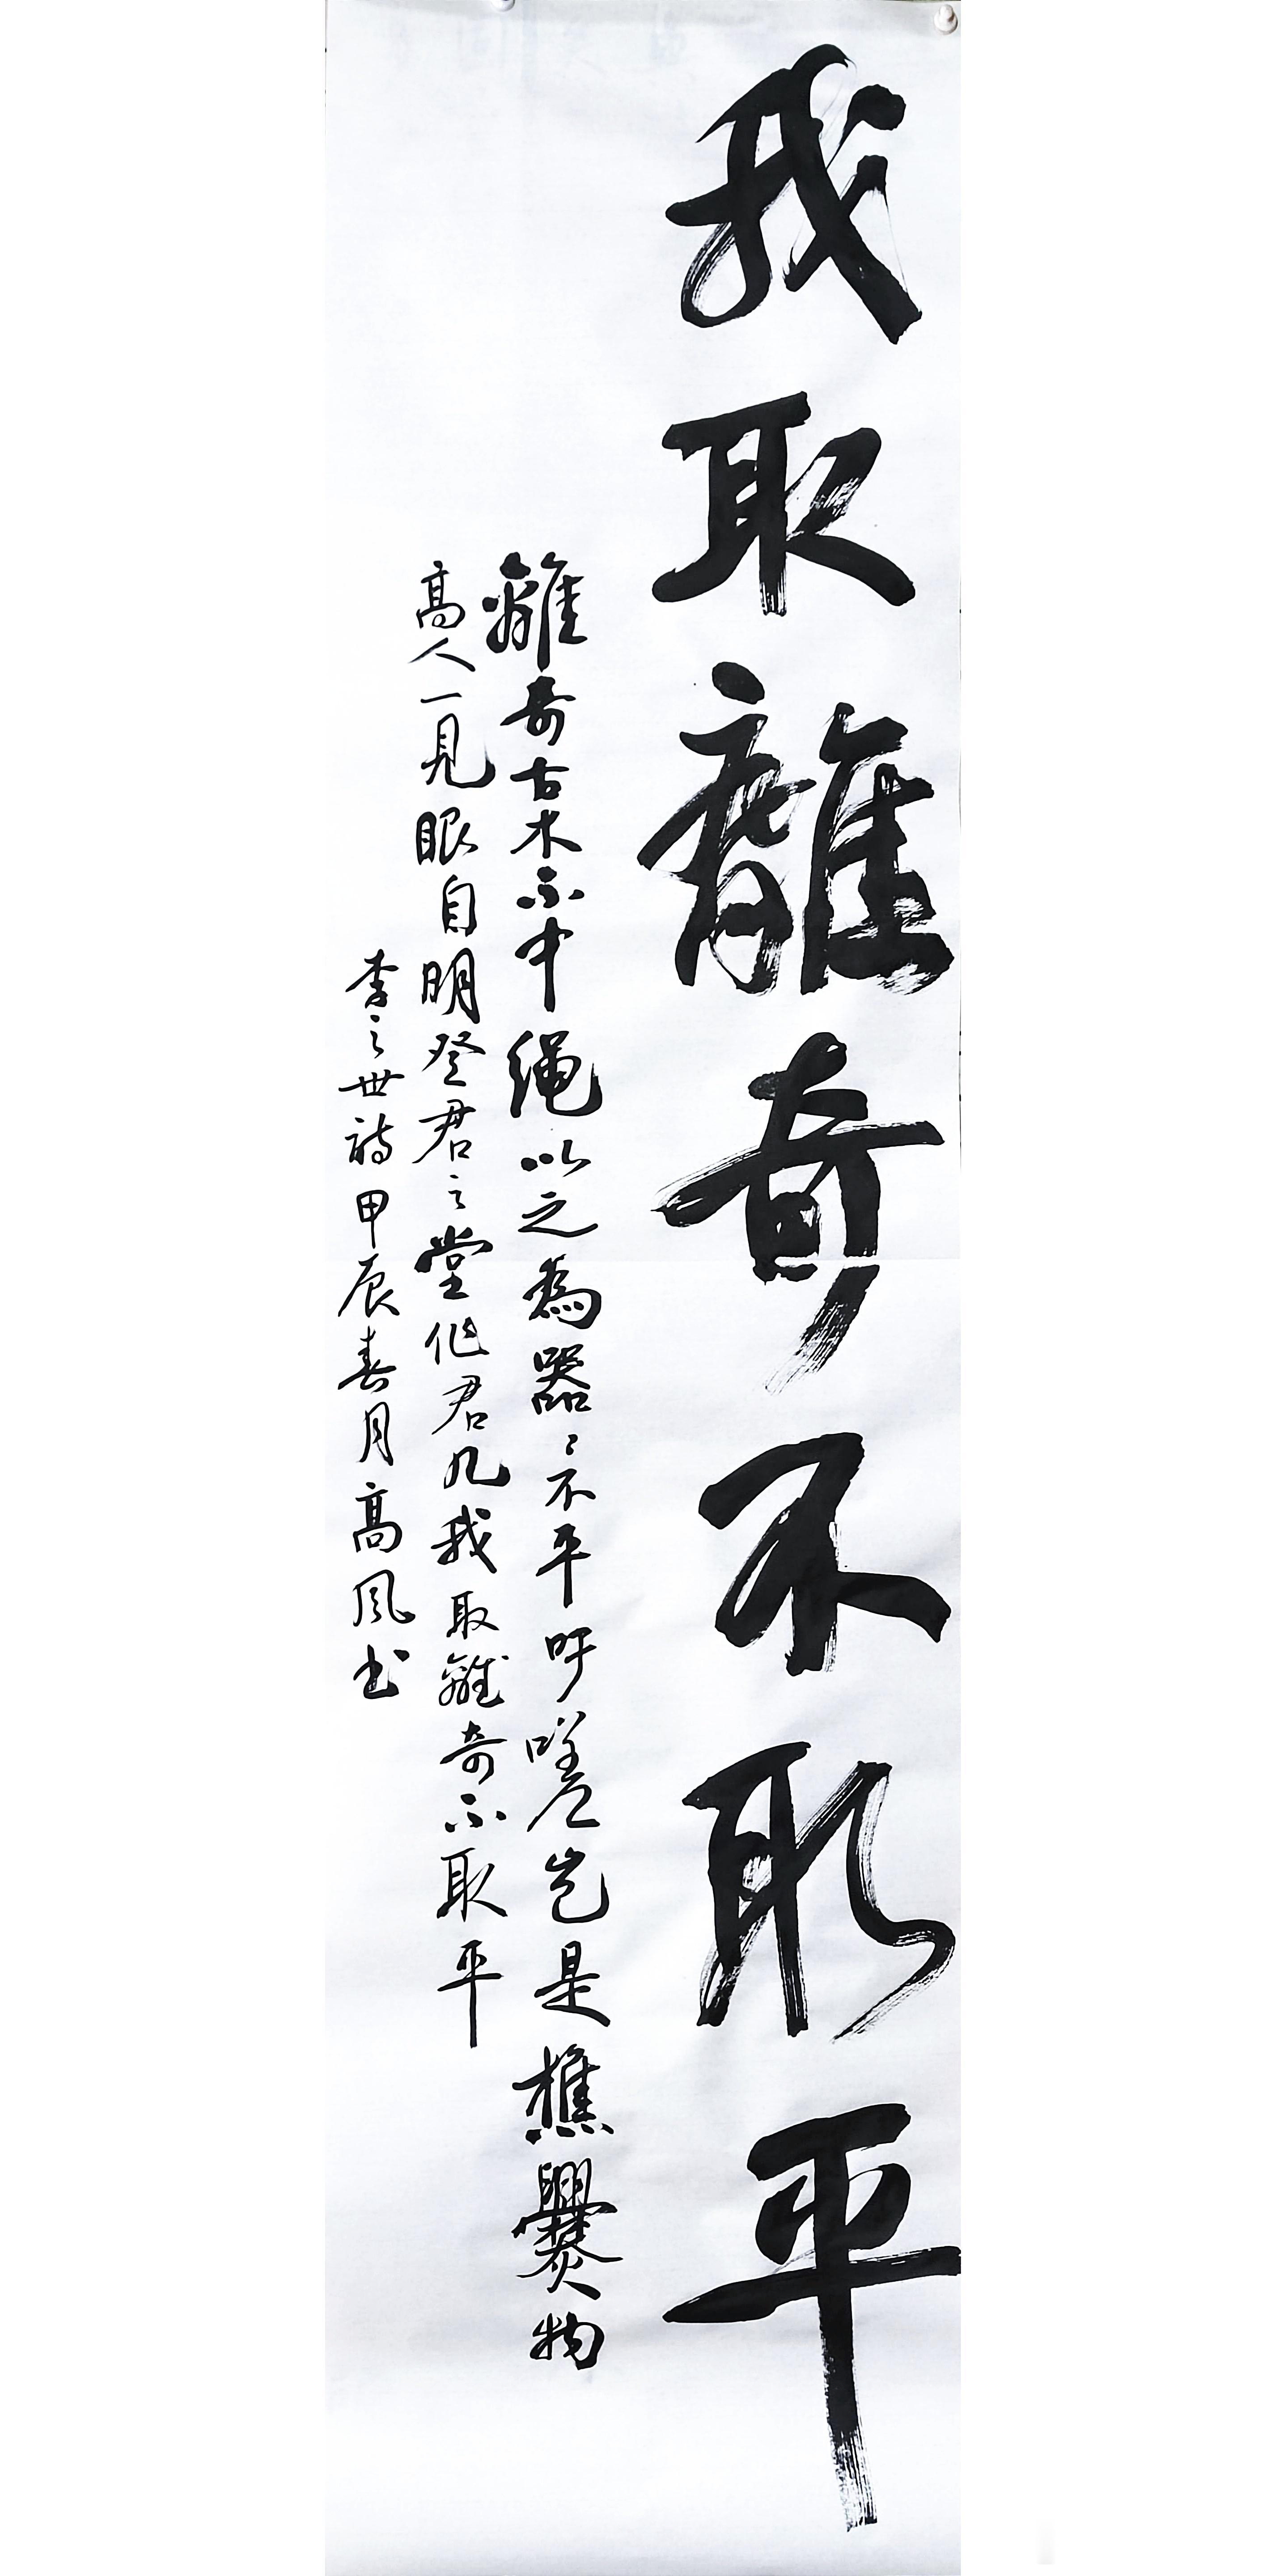 我取離奇不取平
離奇古木不中绳以之為器〻不平吁嗟岂是樵爨物
高人一見眼自明登君之堂作君几我取離奇不取平
李之世詩甲辰春月高风书